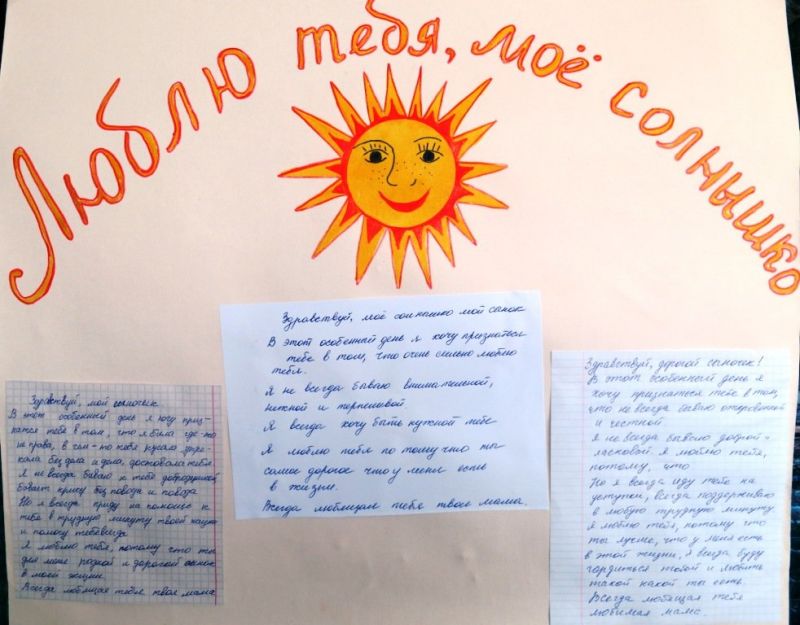 Люблю тебя, моё солнышко
Здравствуй, мой сыночек
В этот особенный день я хочу приз-
наться тебе в том, что я была где-то
не права, в чем-то тебя ругала, упре-
кала без дела и дела, доставала тебя.
Я не всегда бываю к тебе добродушной
бывает кричу без повода и повода
Но я всегда приду на помощь к
тебе в трудную минуту твоей
и помогу тебе всегда
Я люблю тебя, потому что ты
для меня родной и дорогой сынок
в моей жизни.
Всегда любящая тебя твоя мама
Здравствуй, моё солнышко мой сынок
В этот особенный день я хочу признаться
тебе в том, что очень сильно люблю
тебя.
Я не всегда бываю внимательной,
нежной и терпеливой
Я всегда хочу быть нужной тебе
Я люблю тебя потому что ты
самое дорогое что у меня есть
в жизни.
Всегда любящая тебя твоя мама.
Здравствуй, дорогой сыночек!
В этот особенный день я
хочу признаться тебе в том,
что не всегда бываю откровенной
и честной.
Я не всегда бываю доброй и
ласковой. Я люблю тебя,
потому, что
Но я всегда иду тебе на
уступки, всегда поддерживаю
в любую трудную минуту
Я люблю тебя, потому что
ты лучшее, что у меня есть
в этой жизни, я всегда буду
гордиться тобой и любить
такой какой ты есть.
Всегда любящая тебя
любимая мама.